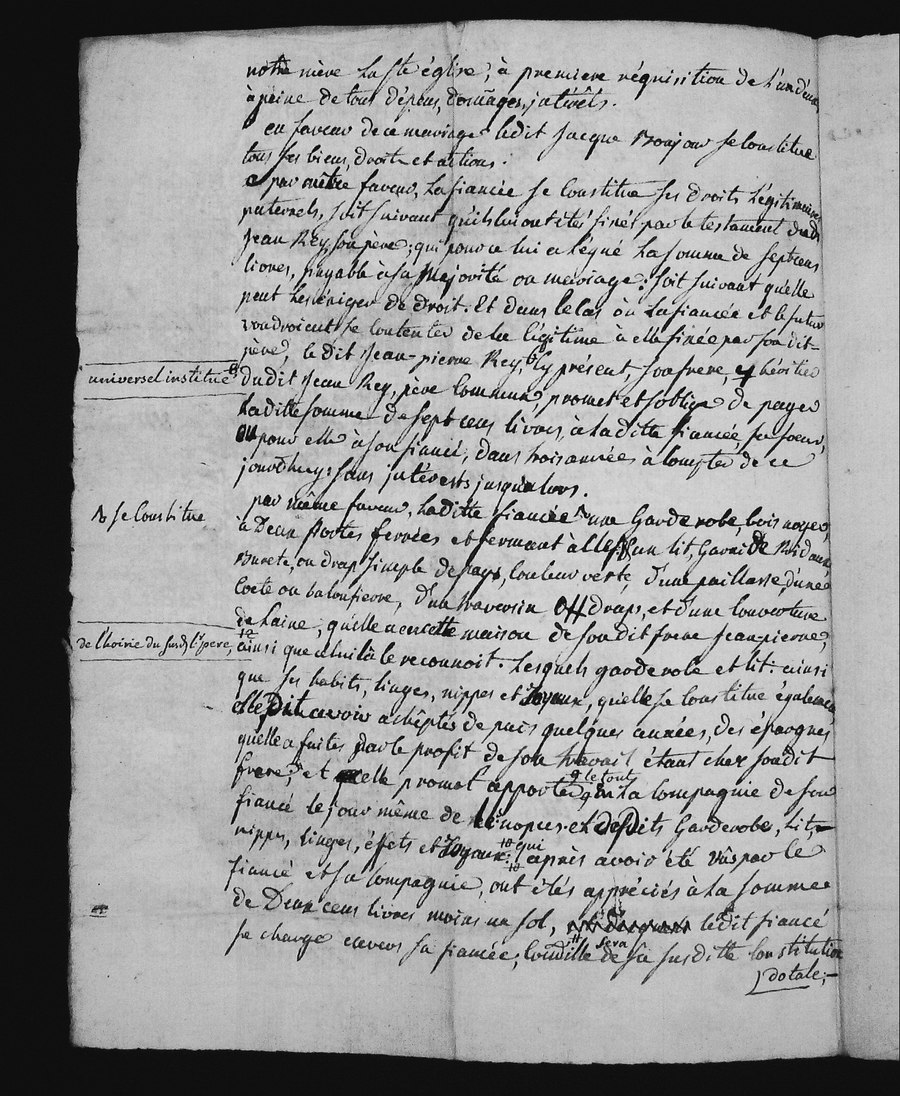 notre mère La Ste église, à premiere réquisition de L'un d'eux
à peine de tous dépens, domages, intérêts.
en faveur de ce mariage ledit Jacque se Constitue
tous ses biens, droits et actions.
par même faveur, La fiancée se Constitue ses droits Légitimaires
paternels, soit suivant qu'ils lui ont étés fixés par le testament dudit
Jean Rey, son père; qui pour ce lui a Légué La somme de sept cens
livres, payable à sa Majorité ou mariage: soit suivant qu'elle
peut Les éxiger de droit. Et dans le cas où La fiancée et le futur
voudroient se Contenter de la légitime à elle fixée par son dit-
père, le dit Jean-pierre Rey, ici présent, son frere, héritier
universel institué
dudit Jean Rey, père Commun, promet et s'oblige de payer
Ladite somme de sept cens livres, à la ditte fiancée, sa soeur,
ou pour elle à son fiancé, dans trois années à Compter de ce
jourdhuy: sans intérêts jusqu'alors.
par même faveur, Laditte fiancée une Garderobe, bois noyer,
se Constitue
à Deux Portes ferrées et fermant à clef; un lit, Garni de Ridaux
Burete, ou drap simple de pays, Couleur verte, d'une paillasse, d'une
Coete ou baloufiere, d'un traversin draps, et d'une Couverture
de Laine; qu'elle a en cette maison de son dit frere Jean pierre,
de l'hoirie du susdt pere,
ainsi que celui là le reconnoit. Lesquels garderobe et lit. ainsi
que ses habits, linges, nippes et Joyaux, qu'elle se Constitue également
elle Dit avoir achêptés depuis quelques années, des épargnes
qu'elle a faites par le profit de son travail étant chez son dit
frere, et elle promet apporter en La compagnie de son
le tout
fiancé le jour même de Lesdits Garderobe, Lit,
nippes, linges, éffets et Joyaux: après avoir été vûs par le
qui
fiancé et sa Compagnie, ont étés appréciés à la somme
de Deux cens livres moins un sol, ledit fiancé
se charge envers sa fiancée, de sa susditte Constitution
sera
dotale;